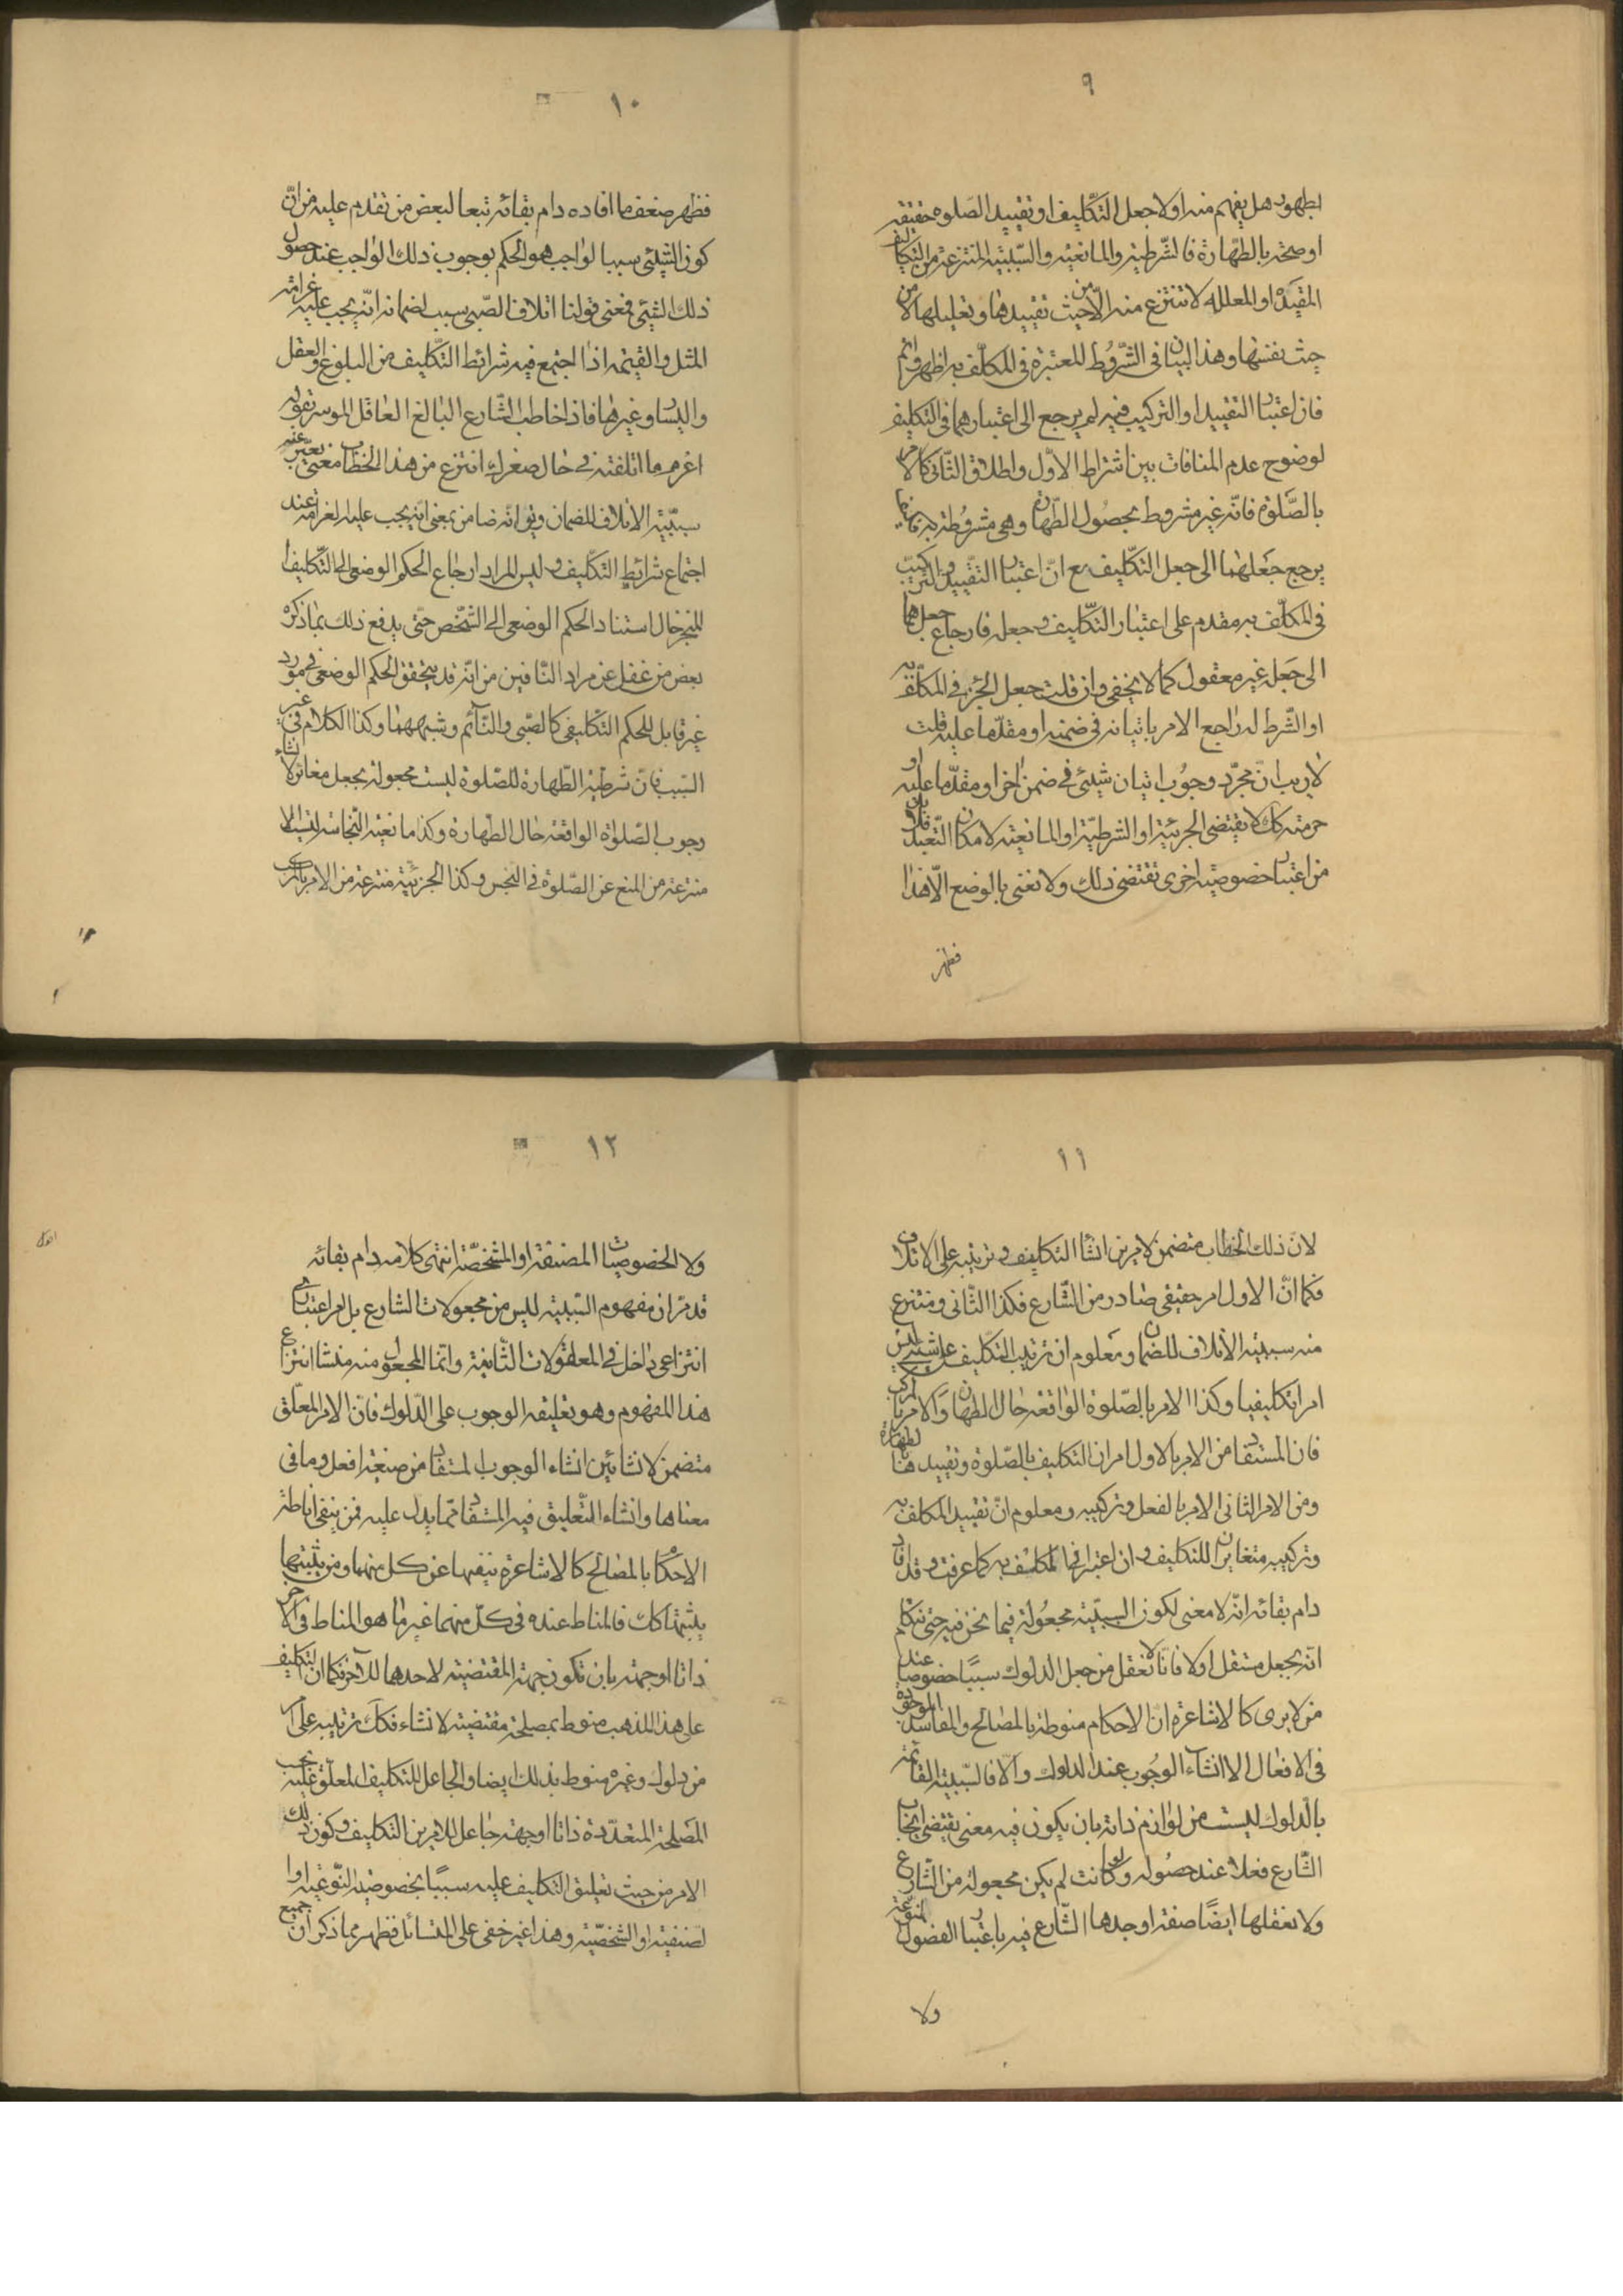 ٩
بطهور هل يفهم منه اولا جعل التكليف او تقييد الصلوة حقيقة
او صحة بالطهارة فالشرطية والمانعية والسببية المنتزعة من التكاليف
المقيدة او المعللة لا تنتزع منه الا من حيث تقييدها وتعليلها لا من
حيث نفسها وهذا البيان في الشروط المعتبرة في المكلف به اظهر واتم
فان اعتبار التقييد او التركيب فيه لم يرجع الى اعتبارهما في التكليف
لوضوح عدم المنافات بين اشتراط الاول واطلاق الثاني كالامر
بالصلوة فانه غير مشروط بحصول الطهارة وهي مشروطة به فانما
يرجع جعلهما الى جعل التكليف مع ان اعتبار التقييد والتركيب
في المكلف به مقدم على اعتبار التكليف وجعله فارجاع جعلهما
الى جعله غير معقول كما لا يخفى وان قلت جعل الجزء في المكلف به
او الشرط له راجع الامر باتيانه في ضمنه او مقدما عليه قلت
لا ريب ان مجرد وجوب اتيان شيئي في ضمن اخر او مقدما عليه او
حرمته كك لا يقتضى الجزئية او الشرطية او المانعية لامكان التعبد فلا بد
من اعتبار خصوصية اخرى تقتضى ذلك ولا نعنى بالوضع الا هذا
فظهر
١٠
فظهر ضعف ما افاده دام بقائه تبعا لبعض من تقدم عليه من ان
كون الشيئي سببا لواجب هو الحكم بوجوب ذلك الواجب عند حصول
ذلك الشيئي فمعنى قولنا اتلاف الصبي سبب لضمانه انه يجب عليه غرامة
المثل والقيمة اذا اجتمع فيه شرائط التكليف من البلوغ والعقل
واليسار وغيرها فاذا خاطب الشارع البالغ العاقل الموسر بقوله
اغرم ما اتلفته في حال صغرك انتزع من هذا الخطاب معنى يعبر عنه
بسببية الاتلاف للضمان ويق انه ضامن بمعنى انه يجب عليه الغرامة عند
اجتماع شرائط التكليف وليس المراد ارجاع الحكم الوضعي الى التكليف
المنجز حال استناد الحكم الوضعي الى الشخص حتى يدفع ذلك بما ذكره
بعض من غفل عن مراد النافين من انه قد يتحقق الحكم الوضعي في مورد
غير قابل للحكم التكليفي كالصبي والنائم وشبههما وكذا الكلام في غير
السبب فان شرطية الطهارة للصلوة ليست مجعولة بجعل مغائر لانشاء
وجوب الصلوة الواقعة حال الطهارة وكذا مانعية النجاسة ليست الا
منتزعة من المنع عن الصلوة في النجس وكذا الجزئية منتزعة من الامر بالمركب
١١
لان ذلك الخطاب متضمن لامرين انشاء التكليف وترتيبه على الاتلاف
فكما ان الاول امر حقيقي صادر من الشارع فكذا الثاني ومنتزع
منه سببية الاتلاف للضمان ومعلوم ان ترتيب التكليف على شيئي ليس
امرا تكليفيا وكذا الامر بالصلوة الواقعة حال الطهارة والامر بالمركب
فان المستفاد من الامر بالاول امران التكليف بالصلوة وتقييدها بالطهارة
ومن الامر الثاني الامر بالفعل وتركيبه ومعلوم ان تقييد المكلف به
وتركيبه متغايران للتكليف وان اعتبرا في المكلف به كما عرفت وقد افاد
دام بقائه انه لا معنى لكون السببية مجعولة فيما نحن فيه حتى نتكلم
انه بجعل مستقل اولا فانا لا نعقل من جعل الدلوك سببا خصوصا عند
من لا يرى كالاشاعرة ان الاحكام منوطة بالمصالح والمفاسد الموجودة
في الافعال الا انشاء الوجوب عند الدلوك والا فالسببية القائمة
بالدلوك ليست من لوازم ذاته بان يكون فيه معنى يقتضى ايجاب
الشارع فعلا عند حصوله ولو كانت لم يكن مجعولة من الشارع
ولا نعقلها ايضا صفة اوجدها الشارع فيه باعتبار الفصول المنوعة
ولا
١٢
ولا الخصوصيات المصنفة او المشخصة انتهى كلامه دام بقائه
قد مر ان مفهوم السببية ليس من مجعولات الشارع بل امر اعتباري
انتزاعي داخل في المعقولات الثانية وانما المجعول منه منشا انتزاع
هذا المفهوم وهو تعليقه الوجوب على الدلوك فان الامر المعلق
متضمن لانشائين انشاء الوجوب المستفاد من صيغة افعل وما في
معناها وانشاء التعليق فيه المستفاد مما يدل عليه فمن ينفي اناطة
الاحكام بالمصالح كالاشاعرة ينفيها عن كل منهما ومن يثبتها
يثبتها كك فالمناط عنده في كل منهما غير ما هو المناط في الاخر
ذاتا او جهة بان تكون جهة المقتضية لاحدهما للاخر فكما ان التكليف
على هذا المذهب منوط بمصلحة مقتضية لانشاء فكك ترتيبه على امر
من دلوك وغيره منوط بذلك ايضا والجاعل للتكليف المعلق عليه بحسب
المصلحة المتعددة ذاتا او جهة جاعل للامرين التكليف وكون ذلك
الامر من حيث تعليق التكليف عليه سببا بخصوصية النوعية او ا
لصنفية او الشخصية وهذا غير خفي على المتسائل فظهر مما ذكر ان جميع